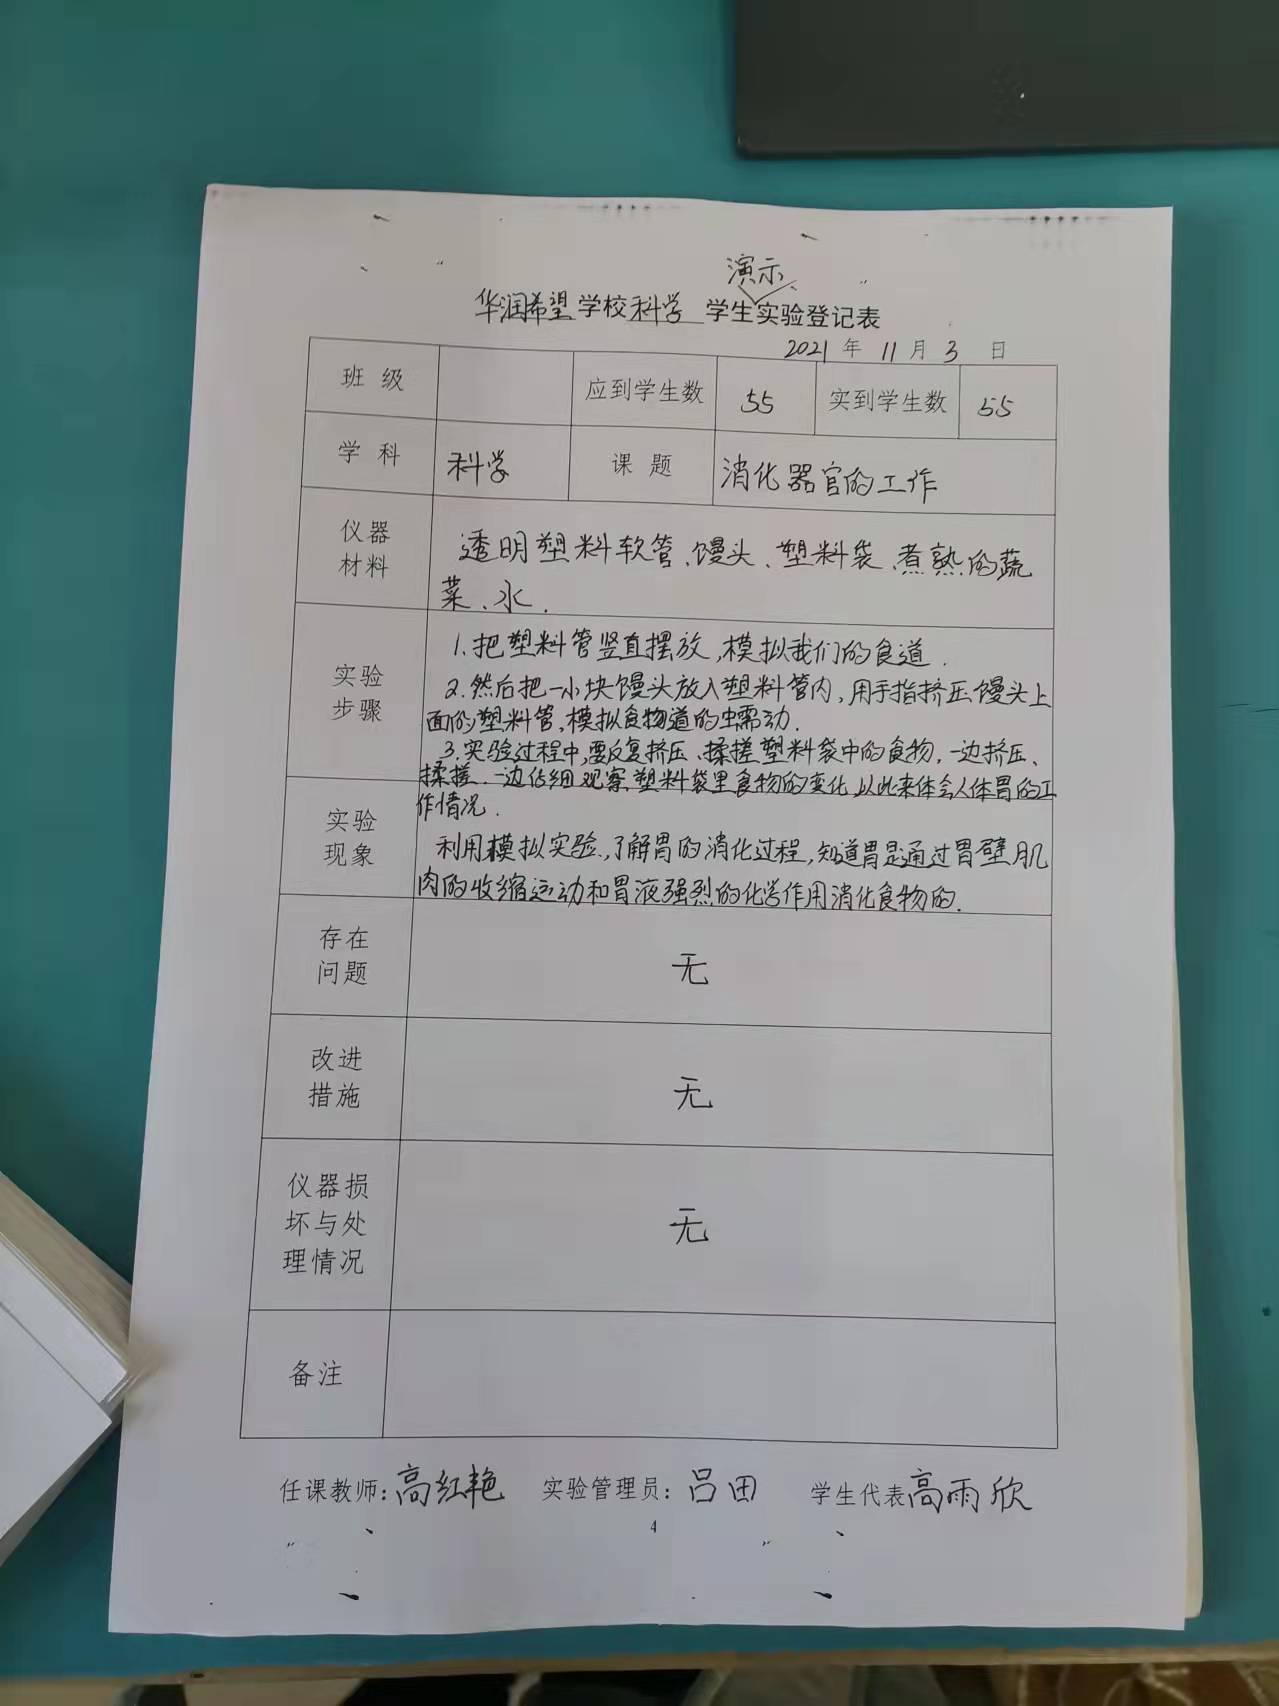 演示
华润希望学校科学 学生实验登记表
2021 年 11 月 3 日
班 级 应到学生数 55 实到学生数 55
学 科 科学 课 题 消化器官的工作
仪器
材料
透明塑料软管、馒头、塑料袋、煮熟的蔬
菜、水.
实验
步骤
1.把塑料管竖直摆放,模拟我们的食道.
2.然后把一小块馒头放入塑料管内,用手指挤压馒头上
面的塑料管,模拟食物道的蠕动.
3.实验过程中,要反复挤压、揉搓塑料袋中的食物,一边挤压、
揉搓.一边仔细观察塑料袋里食物的变化,以此来体会人体胃的工
作情况.
实验
现象
利用模拟实验,了解胃的消化过程,知道胃是通过胃壁肌
肉的收缩运动和胃液强烈的化学作用消化食物的.
存在
问题
无
改进
措施
无
仪器损
坏与处
理情况
无
备注
任课教师:高红艳 实验管理员:吕田 学生代表高雨欣
4